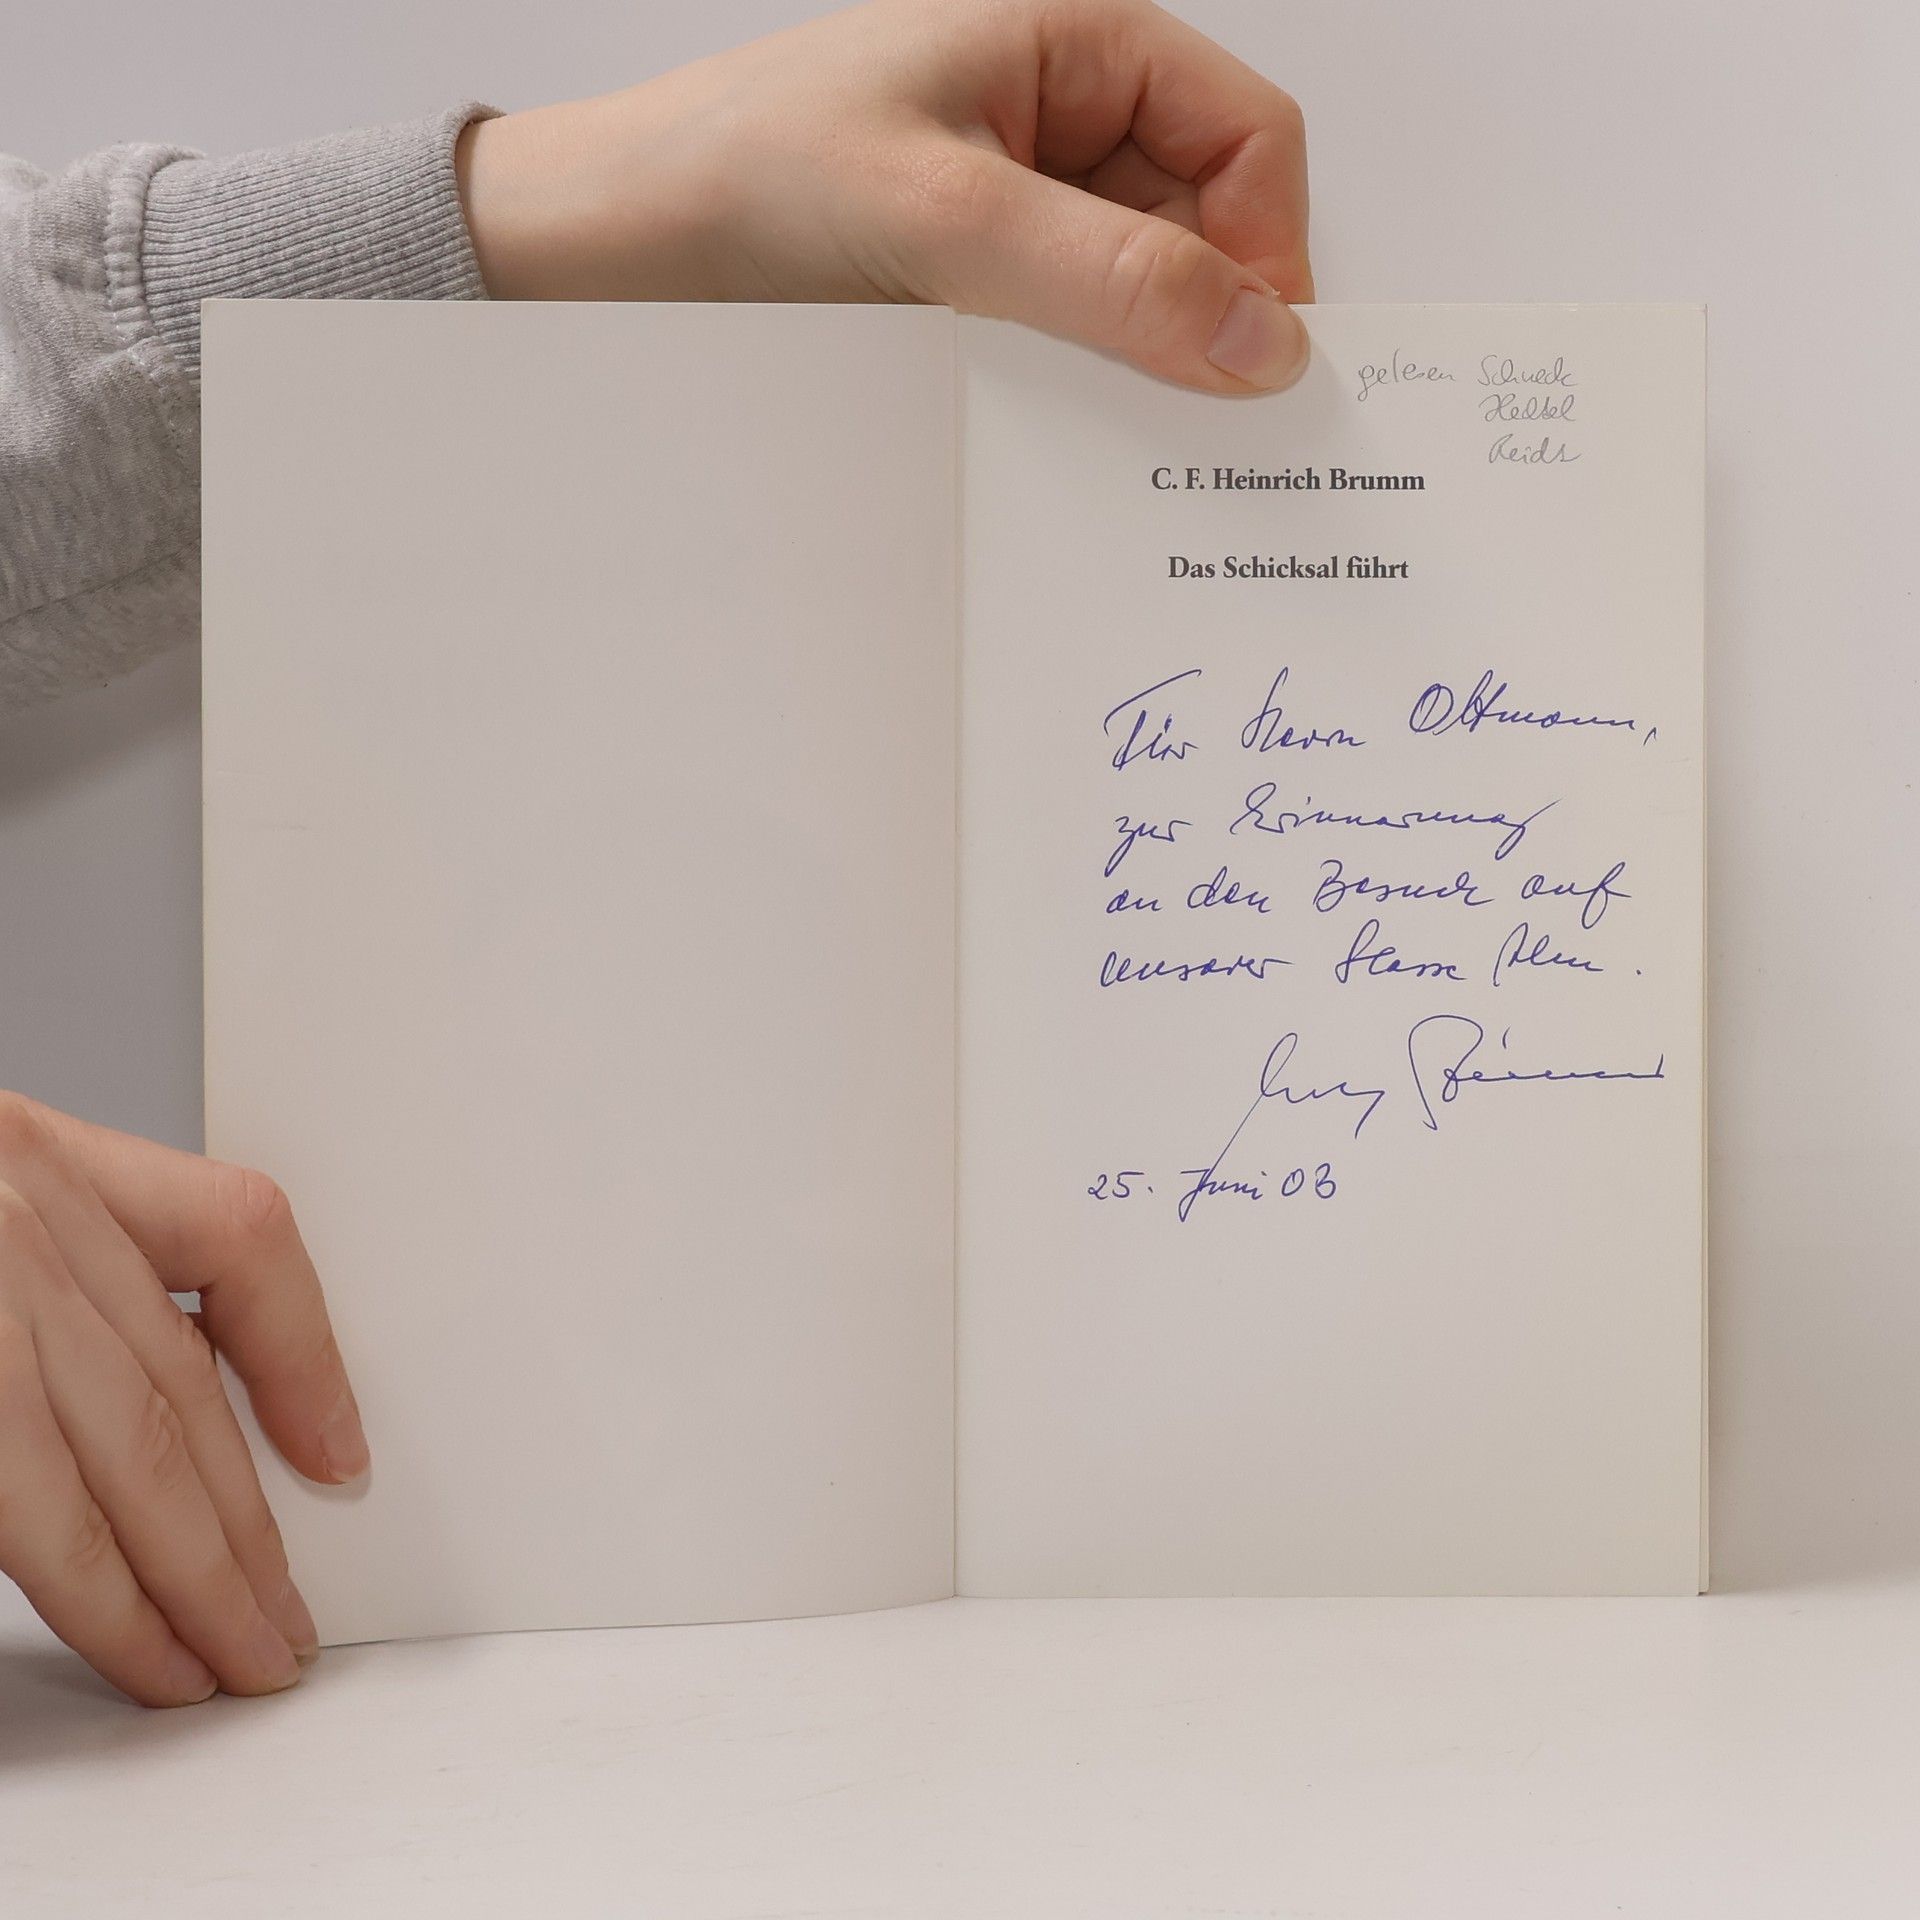 gelesen Schneck
Hedtel
Reidt
C. F. Heinrich Brumm
Das Schicksal führt
Für Herrn Oltmann,
zur Erinnerung
an den Besuch auf
unserer Farm
25. Juni 03